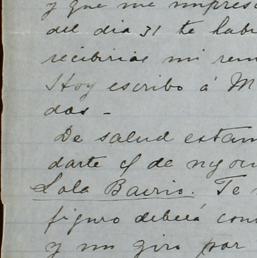 y que me impres
del dia 31 te hab
recibirias mi rem
Hoy escribo á M
dos -
De salud estam
darte
Lola Barrio. Te
figuro deberá con
y un giro por